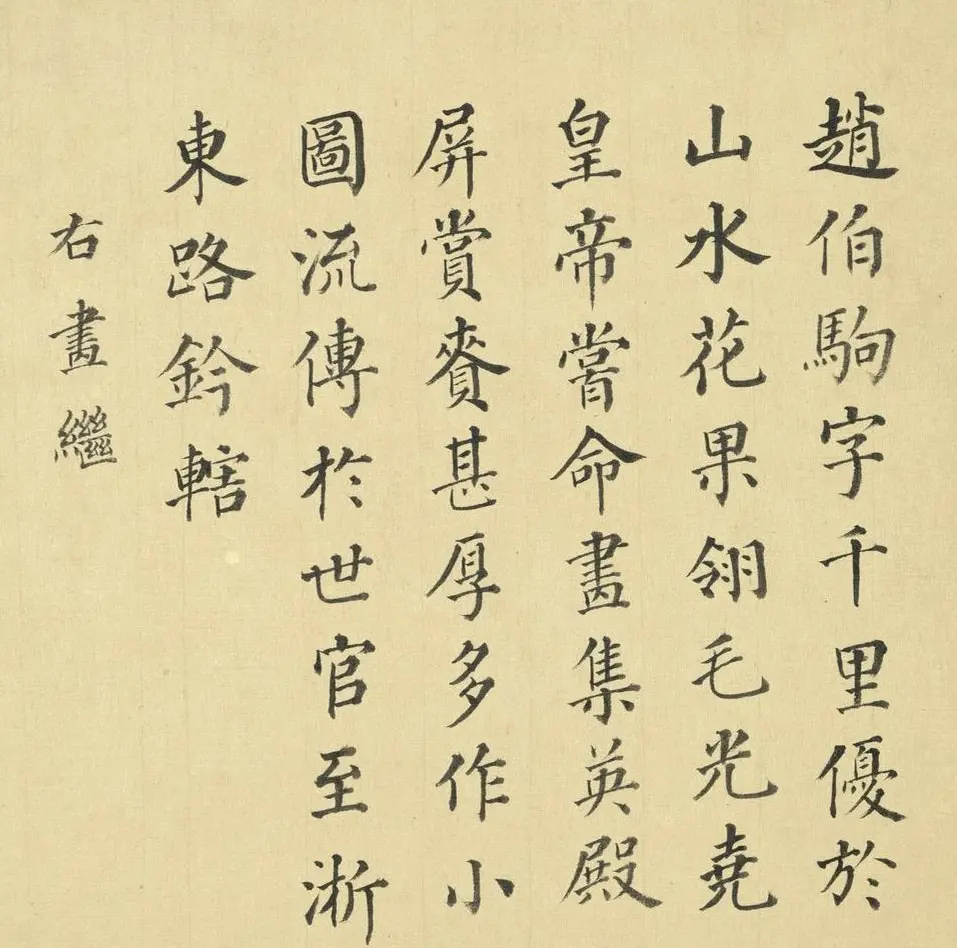 趙伯駒字千里優於
山水花果翎毛光堯
皇帝嘗命畫集英殿
屏賞賚甚厚多作小
圖流傳於世官至淅
東路鈐轄
右畫繼